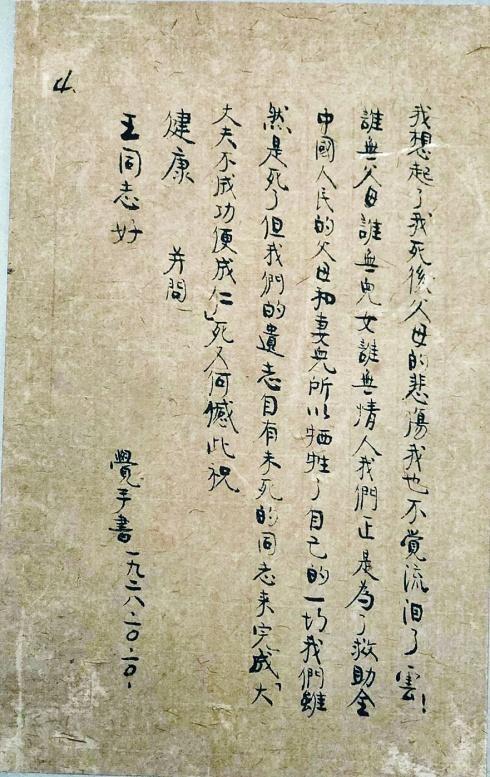 我想起了我死後父母的悲傷我也不覚流泪了雲！
誰無父母誰無兒女誰無情人我們正是為了救助全
中國人民的父母和妻兒所以牺牲了自己的一切我們雖
然是死了但我們的遺志自有未死的同志来完成「大
大夫不成功便成仁」死又何憾此祝
健康 并問
王同志好
覺手書一九二八.一〇.一〇.
4.